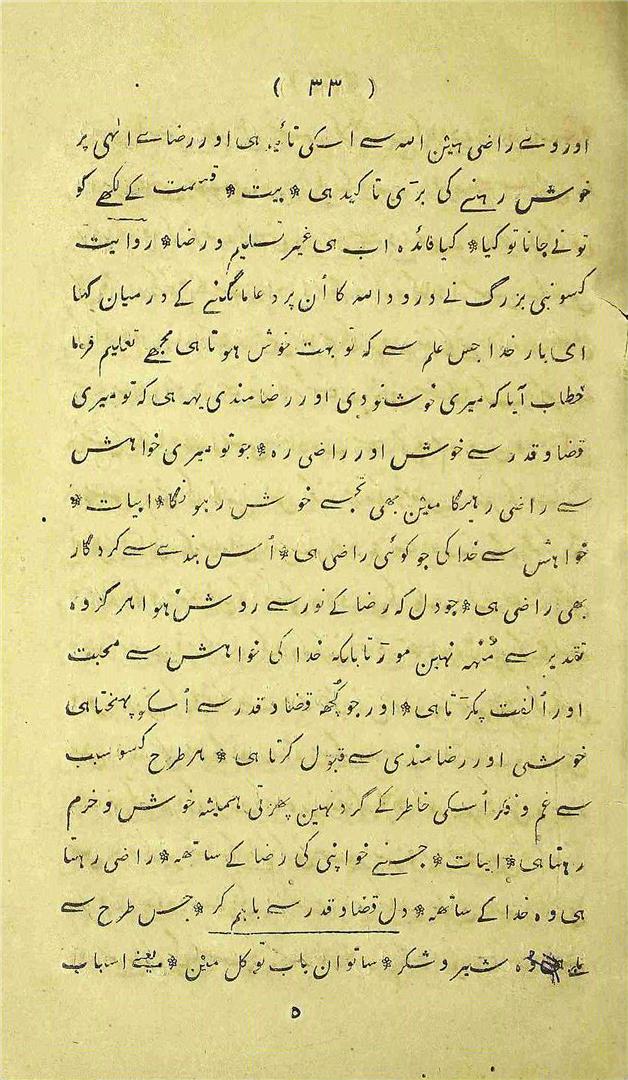 ( ۳۳ )
اور وے راضی ہیں الله سے اسکی تائید ہی اور رضاے الٰہی پر
خوش رہنے کی بڑی تاکید ہی * بیت * قسمت کے لکھے کو
تونے جانا تو کیا * کیا فائدہ اب ہی غیر تسلیم و رضا * روایت
کسو نبی بزرگ نے درود الله کا اُن پر دعا مانگنے کے درمیان کہا
ای بار خدا جس علم سے کہ تو بہت خوش ہوتا ہی مجھے تعلیم فرما
خطاب آیا کہ میری خوشنودی اور رضامندی یہہ ہی کہ تو میری
قضا و قدر سے خوش اور راضی رہ * جو تو میری خواہش
سے راضی رہیگا میں بھی تجھسے خوش رہونگا * ابیات *
خواہش سے خدا کی جو کوئی راضی ہی * اُس بندے سے کردگار
بھی راضی ہی * جو دل کہ رضا کے نور سے روشن ہوا ہرگز وہ
تقدیر سے مُنہہ نہیں موڑتا بلکہ خدا کی خواہش سے محبت
اور اُلفت پکڑتا ہی * اور جو کُچھ قضا و قدر سے اُسکو پہنچتا ہی
خوشی اور رضامندی سے قبول کرتا ہی * ہر طرح کسو سبب
سے غم و فکر اُسکی خاطر کے گرد نہیں پھرتی ہمیشہ خوش و خرم
رہتا ہی * ابیات * جسنے خو اپنی کی رضا کے ساتھہ * راضی رہتا
ہی وہ خدا کے ساتھہ * دل قضا و قدر سے باہم کر * جس طرح سے
وہ شیر و شکر * ساتواں باب توکل میں * یعنے اسباب
۵